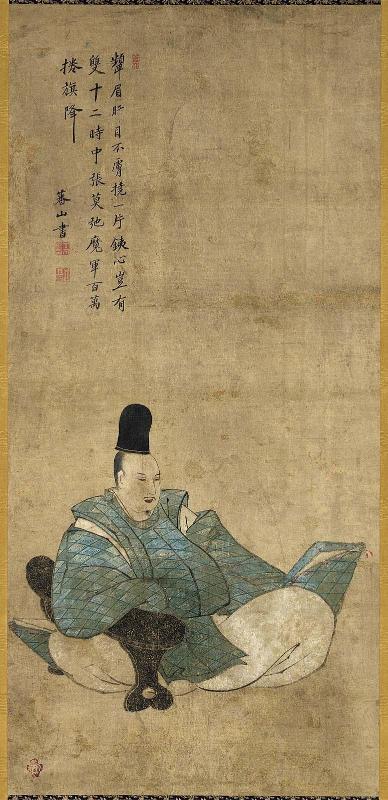 顰眉㫼目不膚撓一片鐵心豈有
雙十二時中張莫弛魔軍百萬
捲旗降
暮山書